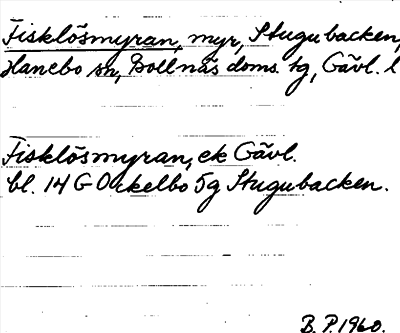 Fisklösmyran, myr, Stugubacken,
Hanebo sn, Bollnäs doms. tg, Gävl. l
Fisklösmyran, ek Gävl.
bl. 14 G Ockelbo 5g Stugubacken.
B. P. 1960.